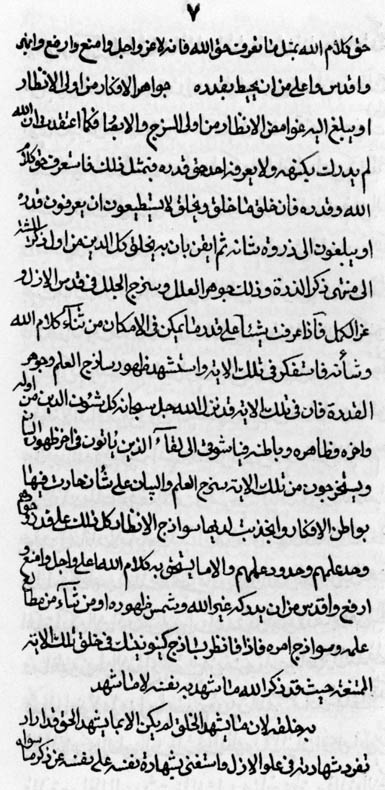 ٧
حق كلام الله بمثل ما تعرف حق الله فانه لاعز واجل وامنع وارفع وابهى
واقدس واعلى من ان يحيط بقدره جواهر الافكار من اولى الانظار
او يبلغ اليه غوامض الانظار من اولى السزج والابصار فكما اعتقدت ان الله
لم يدرك بكنهه ولا يعرفه احد حق قدره فبمثل ذلك فاستعرف حق كلام
الله وقدره فان خلق ما خلق ويخلق لا يستطيعون ان يعرفون قدره
او يبلغون الى ذروة شانه ثم ايقن بان به يخلق كل الذين من اول ذكر
الى منتهى ذكر الذرة وذلك جوهر العلل وسزج الجلل فى قدس الازل و
عز الكمل فاذا عرفت شيئا على قدر ما يمكن فى الامكان من ثناء كلام الله
وشأنه فاستفكر فى تلك الاية واستشهد ظهور ساذج العلم وجوهر
القدرة فان فى تلك الاية قد نزل الله جل سبحانه كل شئون الدين من اوله
واخره وظاهره وباطنه فيا شوقى الى لقاء الذين ياتون فى اخر ظهور البيان
ويستخرجون من تلك الاية سزج العلم والبيان على شأن حارت فيها
بواطن الافكار وانجذبت لديها سواذج الانظار كل ذلك على قدر
وحد علمهم وحدود علمهم والا ما يستحق به كلام الله اعلى واجل وامنع و
ارفع واقدس من ان يدركه غير الله وشمس ظهوره او من شاء من مطالع
علمه وسواذج امره فاذا فانظر بساذج كينونتك فى خلق تلك الاية
الممتنعة حيث قد ذكر الله ما شهد به نفسه لا ما شهد
به خلقه لان ما يشهد الخلق لم يكن الا بما يشهد الحق قد اراد
تفرد شهادته فى علو الازل واستغنى بشهادة نفسه على نفسه عن ذكر ما سواه